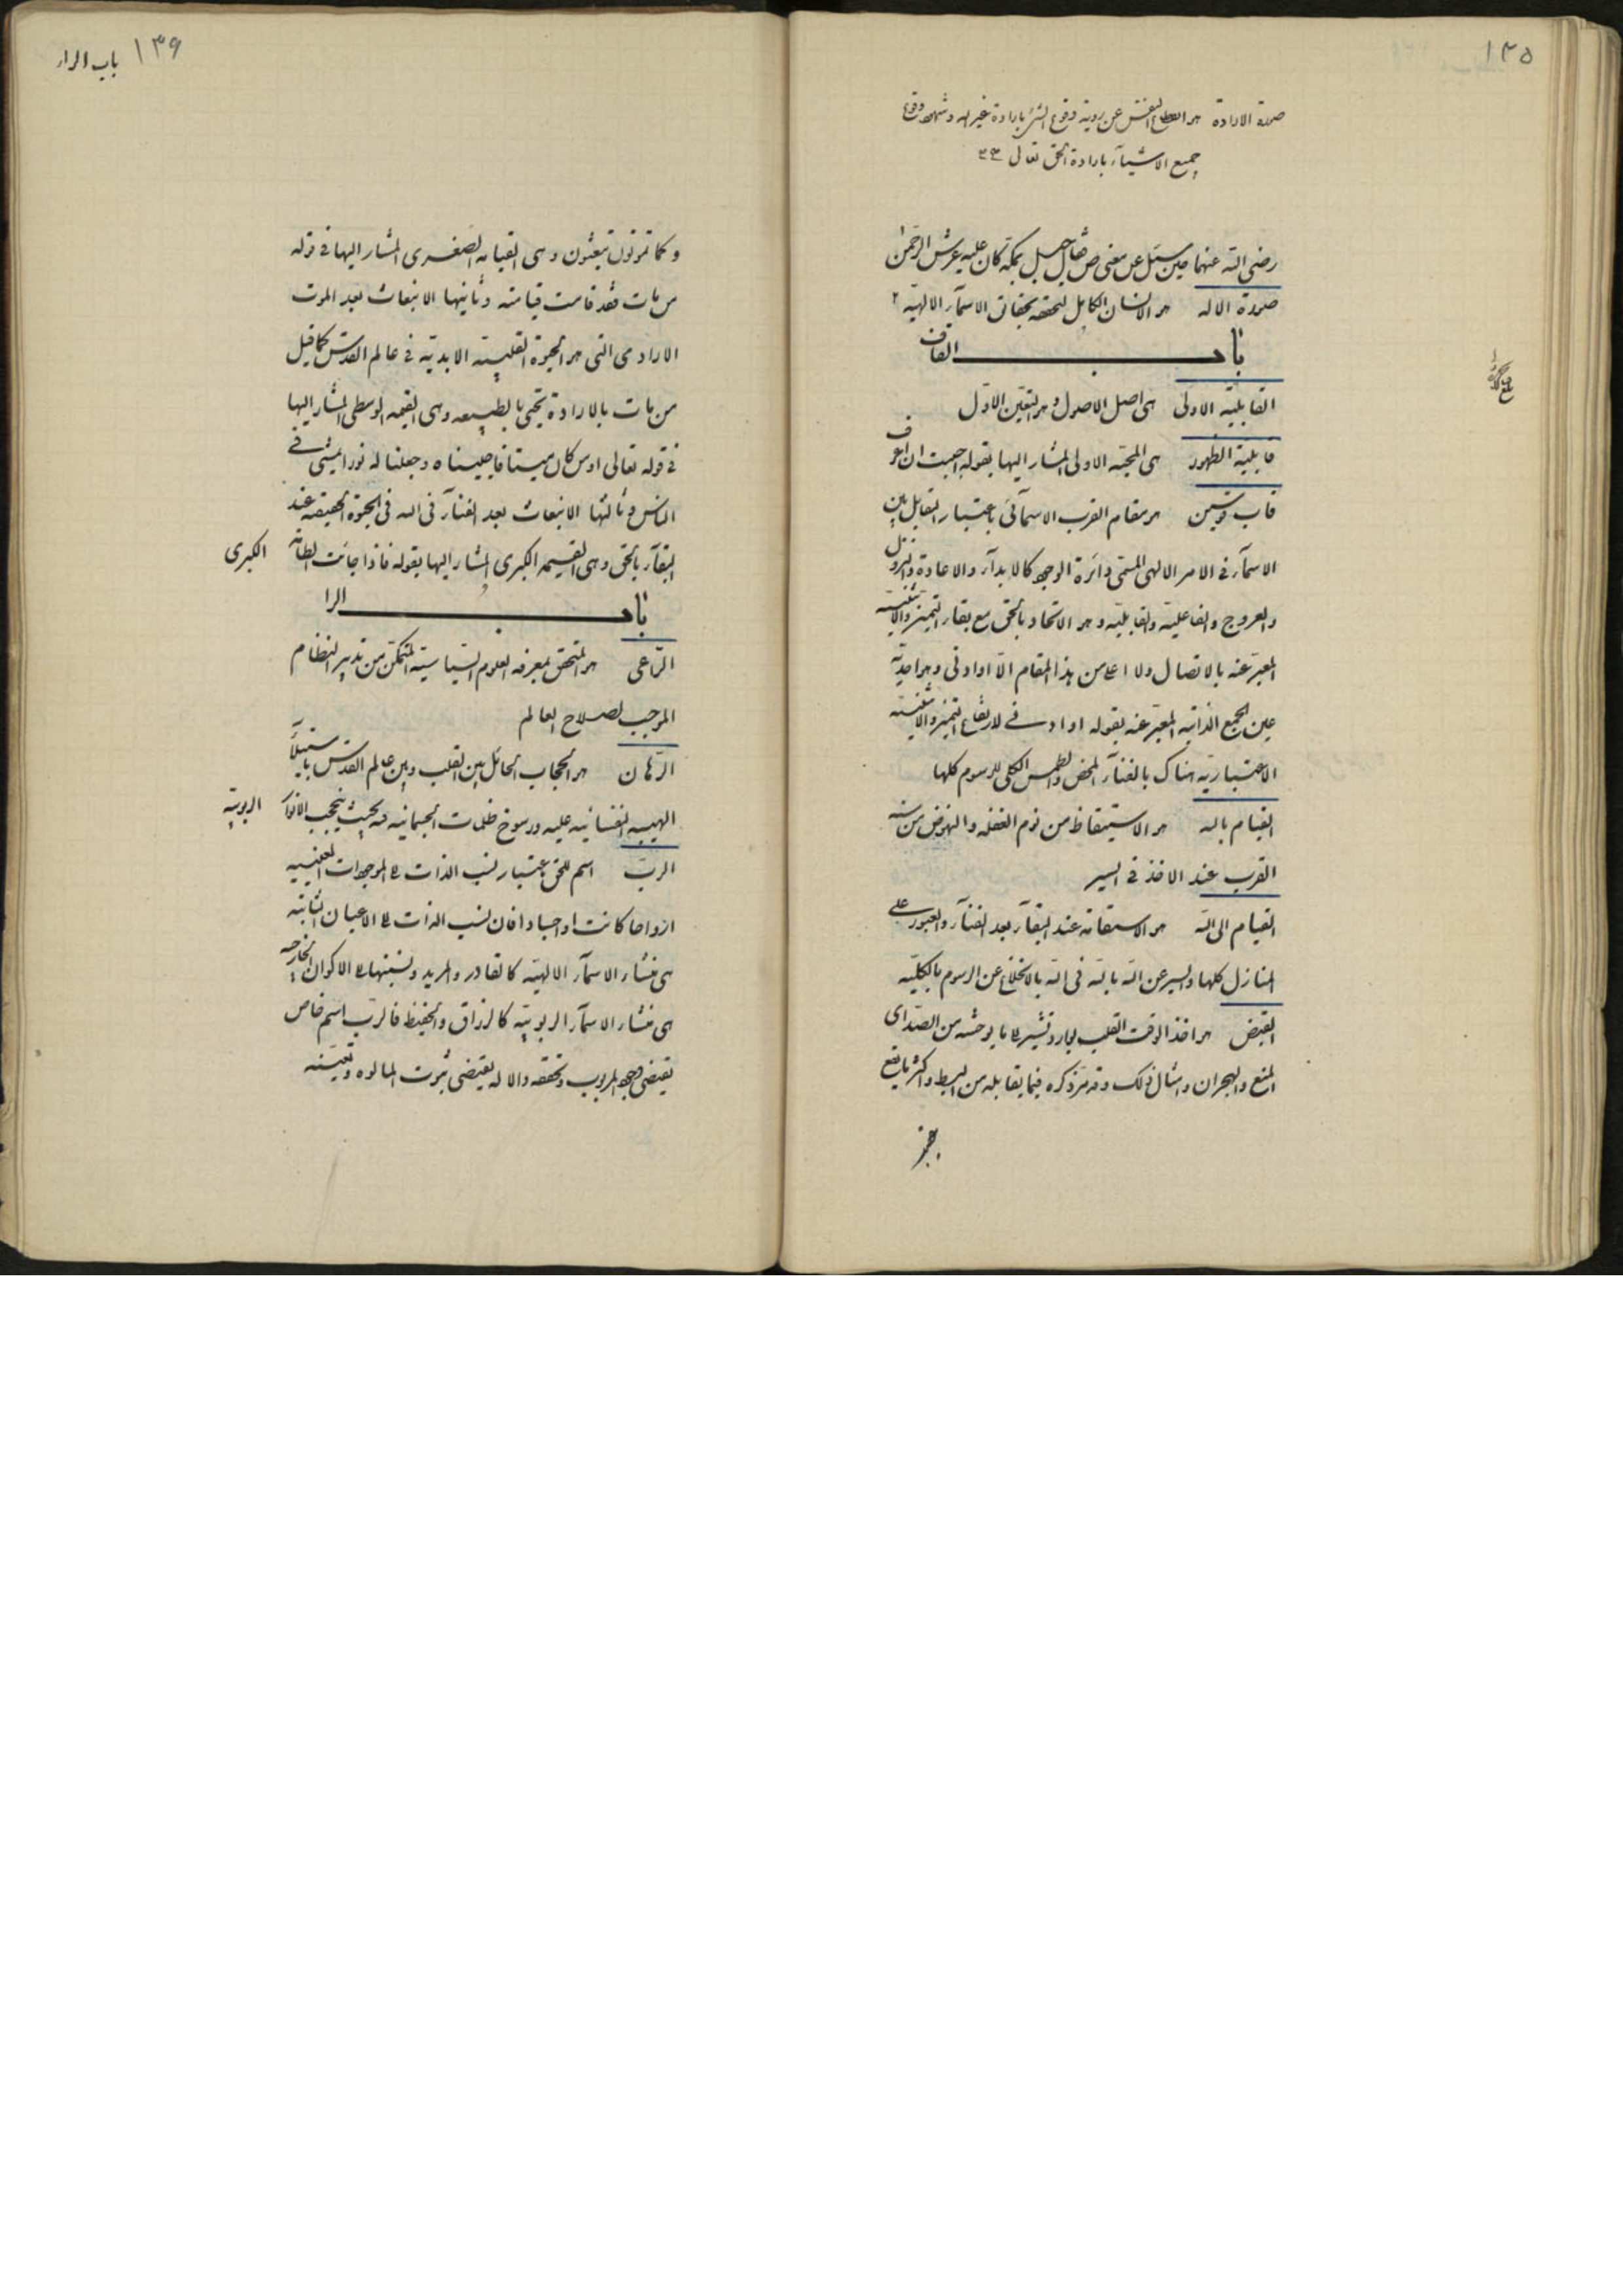 ١٣٥
صورة الارادة هو انقطاع النفس عن رؤية وقوع الشئ بارادة غير الله وشهود وقوع
جميع الاشيآء بارادة الحق تعالى ٣٣
رضى الله عنهما حين سئل عن معنى ص فقال جبل بمكة كان عليه عرش الرحمن
صورة الاله هو الانسان الكامل لتحققه بحقائق الاسمآء الالهية ٢
باب القاف
القابلية الاولى هى اصل الاصول وهو التعين الاول
قابلية الظهور هى المحبة الاولى المشار اليها بقوله احببت ان اعرف
قاب قوسين هو مقام القرب الاسمآئى باعتبار التقابل بين
الاسمآء فى الامر الالهى المسمى دائرة الوجود كالابدآء والاعادة والنزول
والعروج والفاعلية والقابلية وهو الاتحاد بالحق مع بقاء التميز والاثنينية
المعبر عنه بالاتصال ولا اعلى من هذا المقام الا او ادنى وهو احدية
عين الجمع الذاتية المعبر عنه بقوله او ادنى لارتفاع التميز والاثنينية
الاعتبارية هناك بالفنآء المحض والطمس الكلى للرسوم كلها
القيام بالله هو الاستيقاظ من نوم الغفلة والنهوض من سنة
القرب عند الاخذ فى السير
القيام الى الله هو الاستقامة عند البقآء بعد الفنآء والعبور على
المنازل كلها والسير عن الله بالله فى الله بالانخلاع عن الرسوم بالكلية
القبض هو اخذ الوقت القلب بوارد تشير الى ما يوحشه من الصد اى
المنع والهجران وامثال ذلك وقد مر ذكره فيما يقابله من البسط واكثر ما يقع
١٣٦ باب الراء
وكما تموتون تبعثون وهى القيامة الصغرى المشار اليها فى قوله
من مات فقد قامت قيامته وثانيها الانبعاث بعد الموت
الارادى التى هو الحيوة القلبية الابدية فى عالم القدس كما قيل
من مات بالارادة يحيى بالطبيعه وهى القيمه الوسطى المشار اليها
فى قوله تعالى اومن كان ميتا فاحييناه وجعلنا له نورا يمشى فى
الناس وثالثها الانبعاث بعد الفنآء فى الله فى الحيوة الحقيقه عند
البقآء بالحق وهى القيمه الكبرى المشار اليها بقوله فاذا جائت الطامة الكبرى
باب الرا
الراعى هو المتحقق بمعرفه العلوم السياسية المتمكن من تدبير النظام
الموجب لصلاح العالم
الران هو الحجاب الحائل بين القلب وبين عالم القدس باستيلآء
الهيئه النفسانيه عليه ورسوخ ظلمات الجسمانيه فيه بحيث ينحجب الانوار الربوبية
الرب اسم للحق باعتبار نسب الذات الى الموجودات العينيه
ارواحا كانت او اجسادا فان نسب الذات الى الاعيان الثابته
هى منشاء الاسمآء الالهية كالقادر والمريد ونسبتها الى الاكوان الخارجه
هى منشاء الاسمآء الربوبية كالرزاق والحفيظ فالرب اسم خاص
يقتضى وجود المربوب وتحققه والاله يقتضى ثبوت المالوه وتعينه